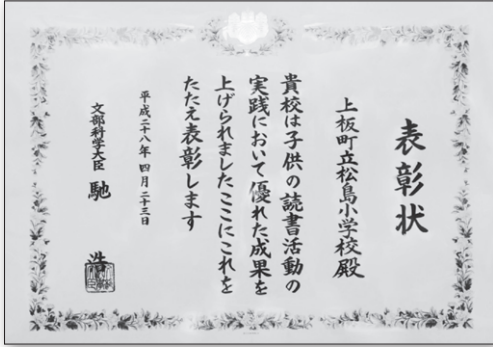 表彰状
上板町立松島小学校殿
貴校は子供の読書活動の
実践において優れた成果を
上げられましたここにこれを
たたえ表彰します
平成二十八年四月二十三日
文部科学大臣 馳 浩